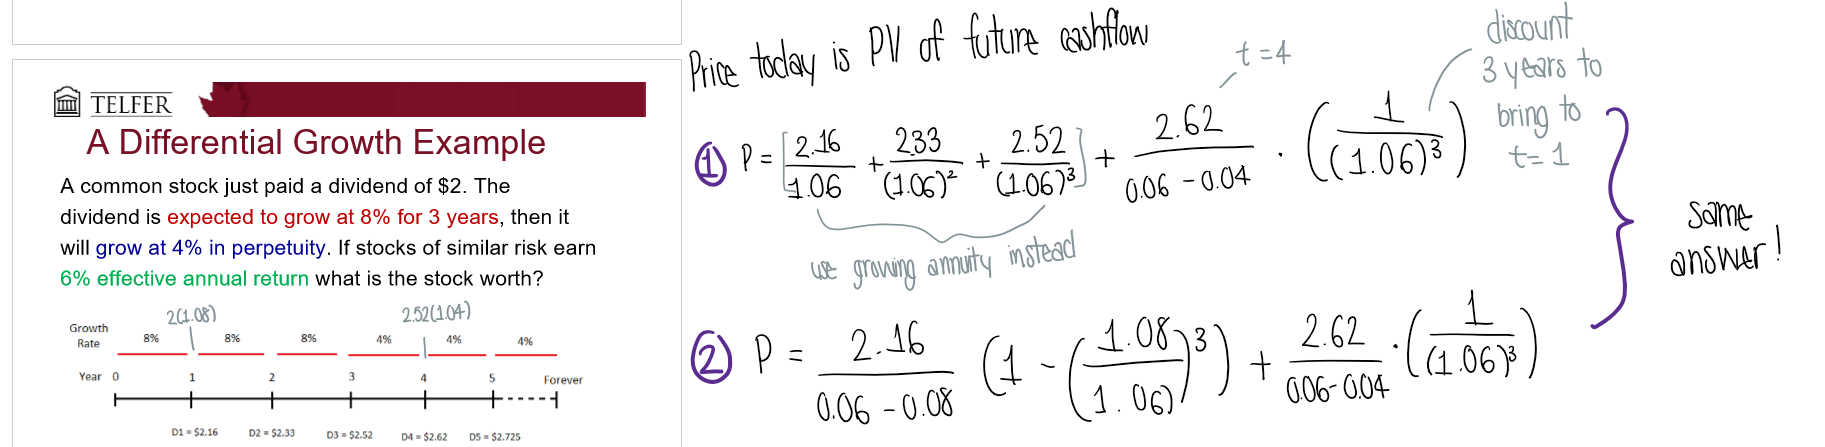 TELFER
A Differential Growth Example
A common stock just paid a dividend of $2. The
dividend is expected to grow at 8% for 3 years, then it
will grow at 4% in perpetuity. If stocks of similar risk earn
6% effective annual return what is the stock worth?
2(1.08)
2.52(1.04)
Growth
Rate
8% 8% 8% 4% 4% 4%
Year 0 1 2 3 4 5 Forever
D1 = $2.16 D2 = $2.33 D3 = $2.52 D4 = $2.62 D5 = $2.725
Price today is PV of future cashflow
t=4
discount
3 years to
bring to
t=1
① P = [2.16/1.06 + 233/(1.06)² + 2.52/(1.06)³] + 2.62/(0.06 - 0.04) · (1/((1.06)³)
use growing annuity instead
② P = 2.16/(0.06 - 0.08) (1 - (1.08/1.06)³) + 2.62/(0.06 - 0.04) · (1/(1.06)³)
same
answer!